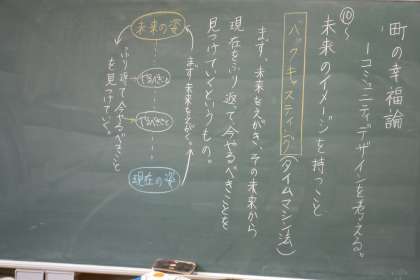 町の幸福論
ーコミュニティデザインを考える。
⑩～
未来のイメージを持つこと
バックキャスティング(タイムマシン法)
まず、未来をえがき、その未来から
現在をふり返って今やるべきことを
見つけていくというもの。
未来の姿
まず未来をえがく。
できること
やるべきこと
現在の姿
ふり返って今やるべきこと
を見つけていく。